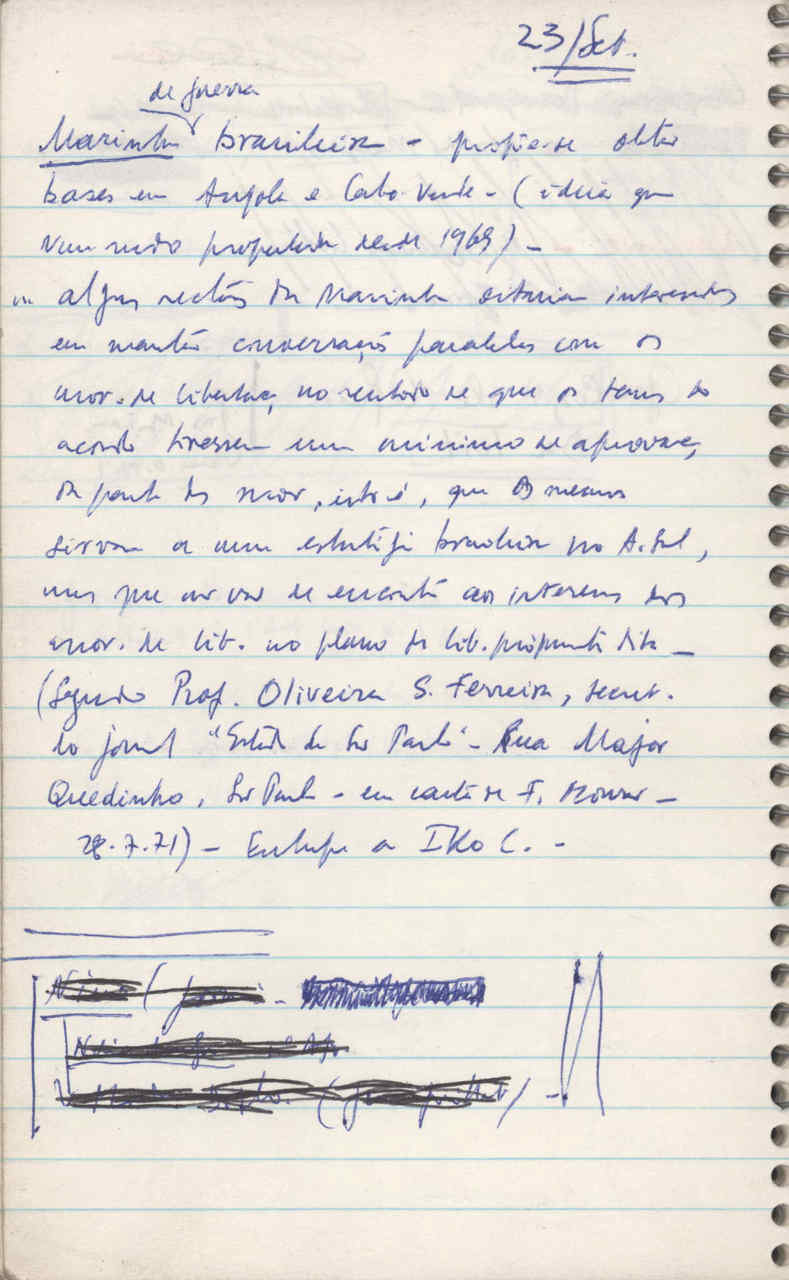 23/Set.
de guerra
Marinha brasileira - propõe-se obter
bases em Angola e Cabo Verde - (ideia que
vem sendo propalada desde 1969) -
alguns sectores da Marinha estariam interessados
em manter conversações paralelas com os
mov. de libertaç no sentido de que os termos do
acordo tivessem um mínimo de aprovaç
da parte dos mov, isto é, que os mesmos
sirvam a uma estratégia brasileira no A. Sul,
mas que ao encontro aos interesses dos
mov. de lib. no plano da lib. propriamente dita -
(Segundo Prof. Oliveira S. Ferreira, secret.
do jornal "Estado de São Paulo" - Rua Major
Quedinho, São Paulo - em carta de F.
28.7.71) - a IKO C. -